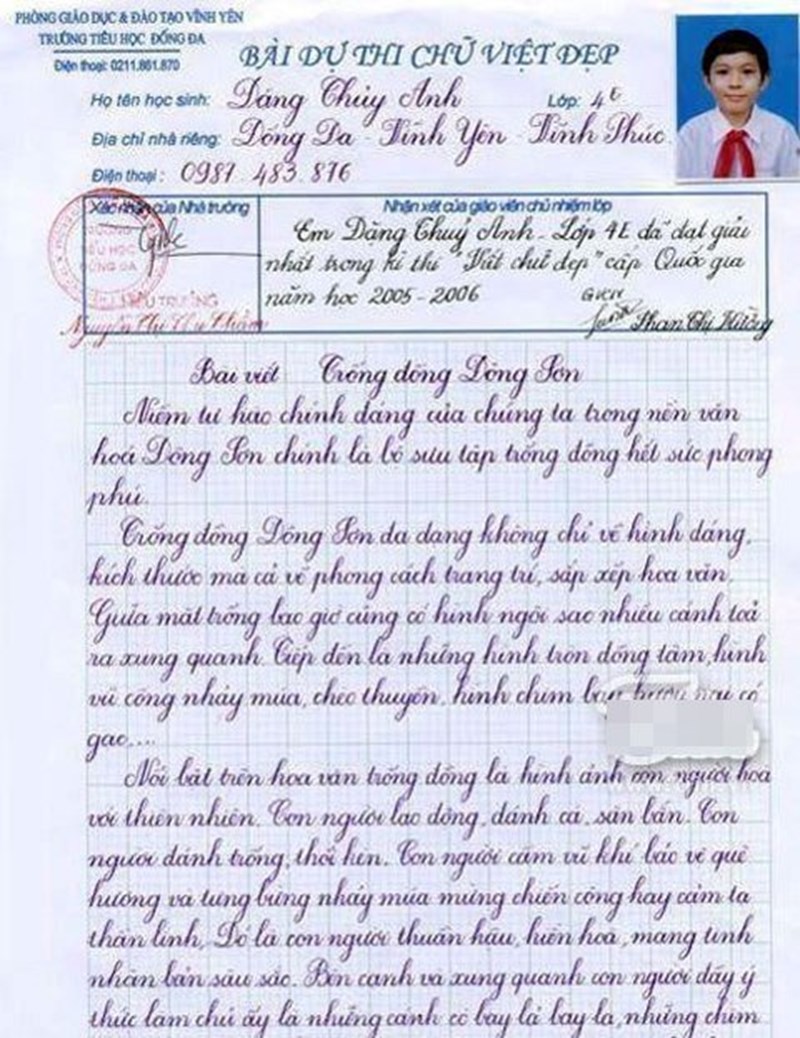 PHÒNG GIÁO DỤC & ĐÀO TẠO VĨNH YÊN
TRƯỜNG TIỂU HỌC ĐỐNG ĐA
Điện thoại: 0211.861.870
BÀI DỰ THI CHỮ VIỆT ĐẸP
Họ tên học sinh: Đặng Thủy Anh Lớp: 4E
Địa chỉ nhà riêng: Đống Đa - Vĩnh Yên - Vĩnh Phúc
Điện thoại: 0987 483 876
Xác nhận của Nhà trường
TIỂU HỌC
ĐỐNG ĐA
HIỆU TRƯỞNG
Nhận xét của giáo viên chủ nhiệm lớp
Em Đặng Thuỷ Anh - Lớp 4E đã đạt giải
nhất trong kì thi "Viết chữ đẹp" cấp Quốc gia
năm học 2005 - 2006
GVCN
Phan Thị Hường
Bài viết Trống đồng Đông Sơn
Niềm tự hào chính đáng của chúng ta trong nền văn
hoá Đông Sơn chính là bộ sưu tập trống đồng hết sức phong
phú.
Trống đồng Đông Sơn đa dạng không chỉ về hình dáng,
kích thước mà cả về phong cách trang trí, sắp xếp hoa văn.
Giữa mặt trống bao giờ cũng có hình ngôi sao nhiều cánh toả
ra xung quanh. Tiếp đến là những hình tròn đồng tâm, hình
vũ công nhảy múa, chèo thuyền, hình chim bay, hươu nai có
gạc,...
Nổi bật trên hoa văn trống đồng là hình ảnh con người hoà
với thiên nhiên. Con người lao động, đánh cá, săn bắn. Con
người đánh trống, thổi kèn. Con người cầm vũ khí bảo vệ quê
hương và tưng bừng nhảy múa mừng chiến công hay cảm tạ
thần linh. Đó là con người thuần hậu, hiền hoà, mang tính
nhân bản sâu sắc. Bên cạnh và xung quanh con người đầy ý
thức làm chủ ấy là những cánh cò bay lả bay la, những chim